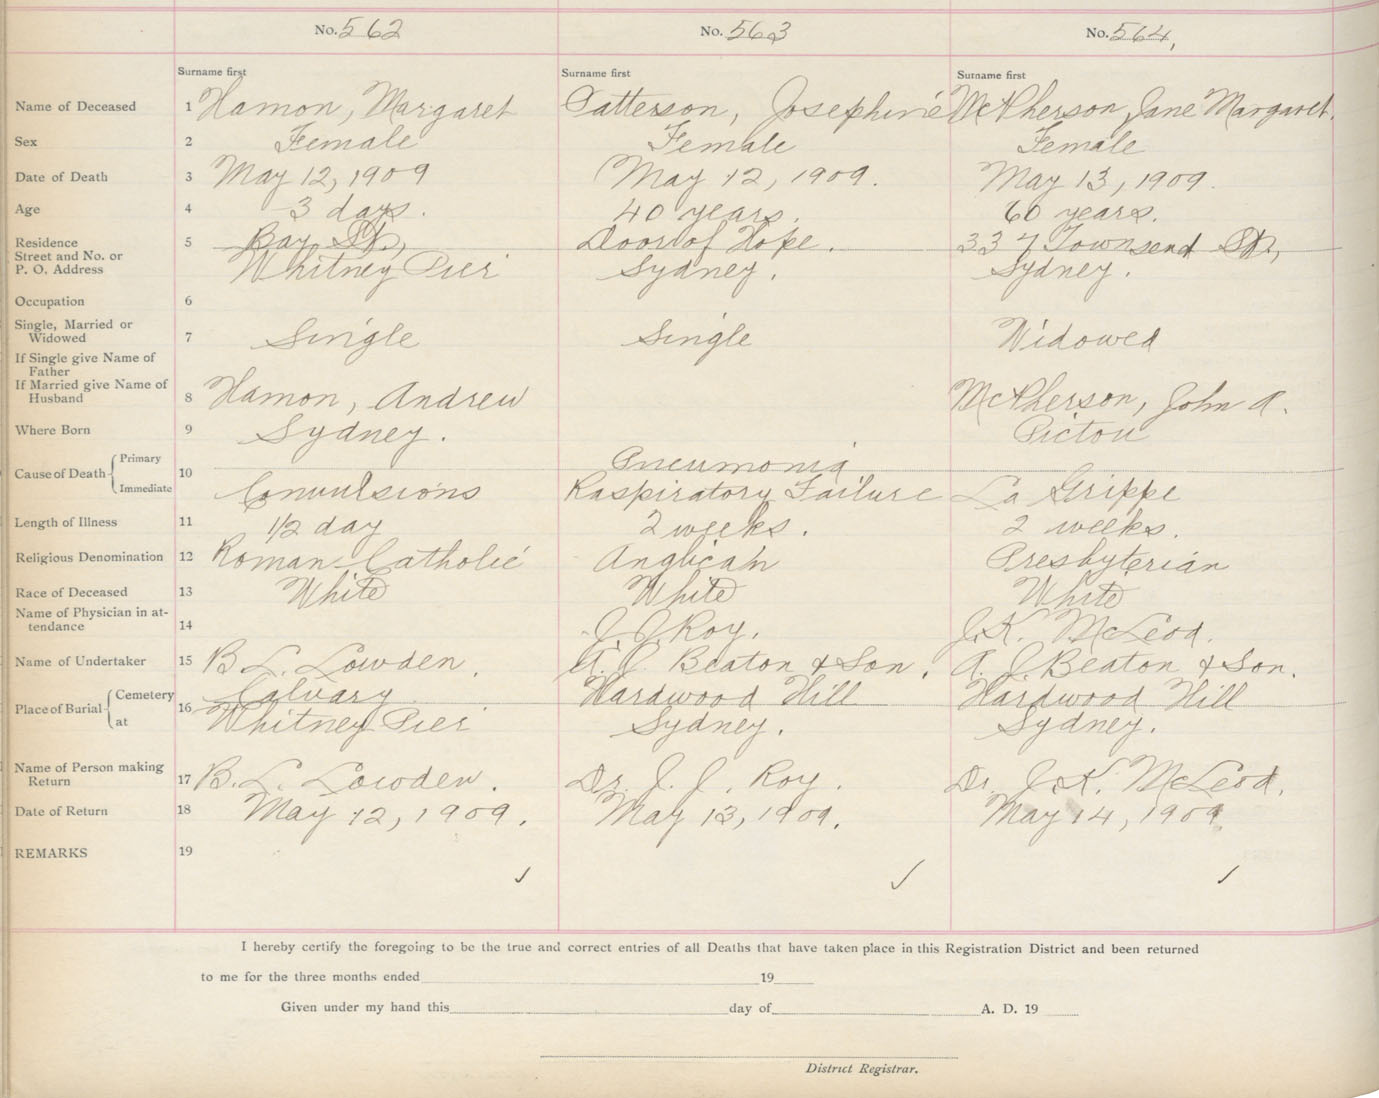 No. 562 No. 563 No. 564,
Surname first Surname first Surname first
Name of Deceased 1 Hamon, Margaret Patterson, Josephine McPherson, Jane Margaret.
Sex 2 Female Female Female
Date of Death 3 May 12, 1909 May 12, 1909. May 13, 1909.
Age 4 3 days. 40 years. 60 years.
Residence 5 Bay St., Door of Hope. 337 Townsend St.,
Street and No. or
P. O. Address Whitney Pier Sydney. Sydney.
Occupation 6
Single, Married or
Widowed 7 Single Single Widowed
If Single give Name of
Father
If Married give Name of
Husband 8 Hamon, Andrew McPherson, John A.
Where Born 9 Sydney. Pictou
Cause of Death Primary 10 Pneumonia
Immediate Convulsions Raspiratory Failure La Grippe
Length of Illness 11 1/2 day 2 weeks. 2 weeks.
Religious Denomination 12 Roman Catholic Anglican Presbyterian
Race of Deceased 13 White White White
Name of Physician in at-
tendance 14 J. J. Roy. J. K. McLeod.
Name of Undertaker 15 B. L. Lowden. A. J. Beaton & Son. A. J. Beaton & Son.
Place of Burial Cemetery 16 Calvary Hardwood Hill Hardwood Hill
at Whitney Pier Sydney. Sydney.
Name of Person making
Return 17 B. L. Lowden. Dr. J. J. Roy. Dr. J. K. McLeod.
Date of Return 18 May 12, 1909. May 13, 1909. May 14, 1909
REMARKS 19
I hereby certify the foregoing to be the true and correct entries of all Deaths that have taken place in this Registration District and been returned
to me for the three months ended 19
Given under my hand this day of A. D. 19
District Registrar.